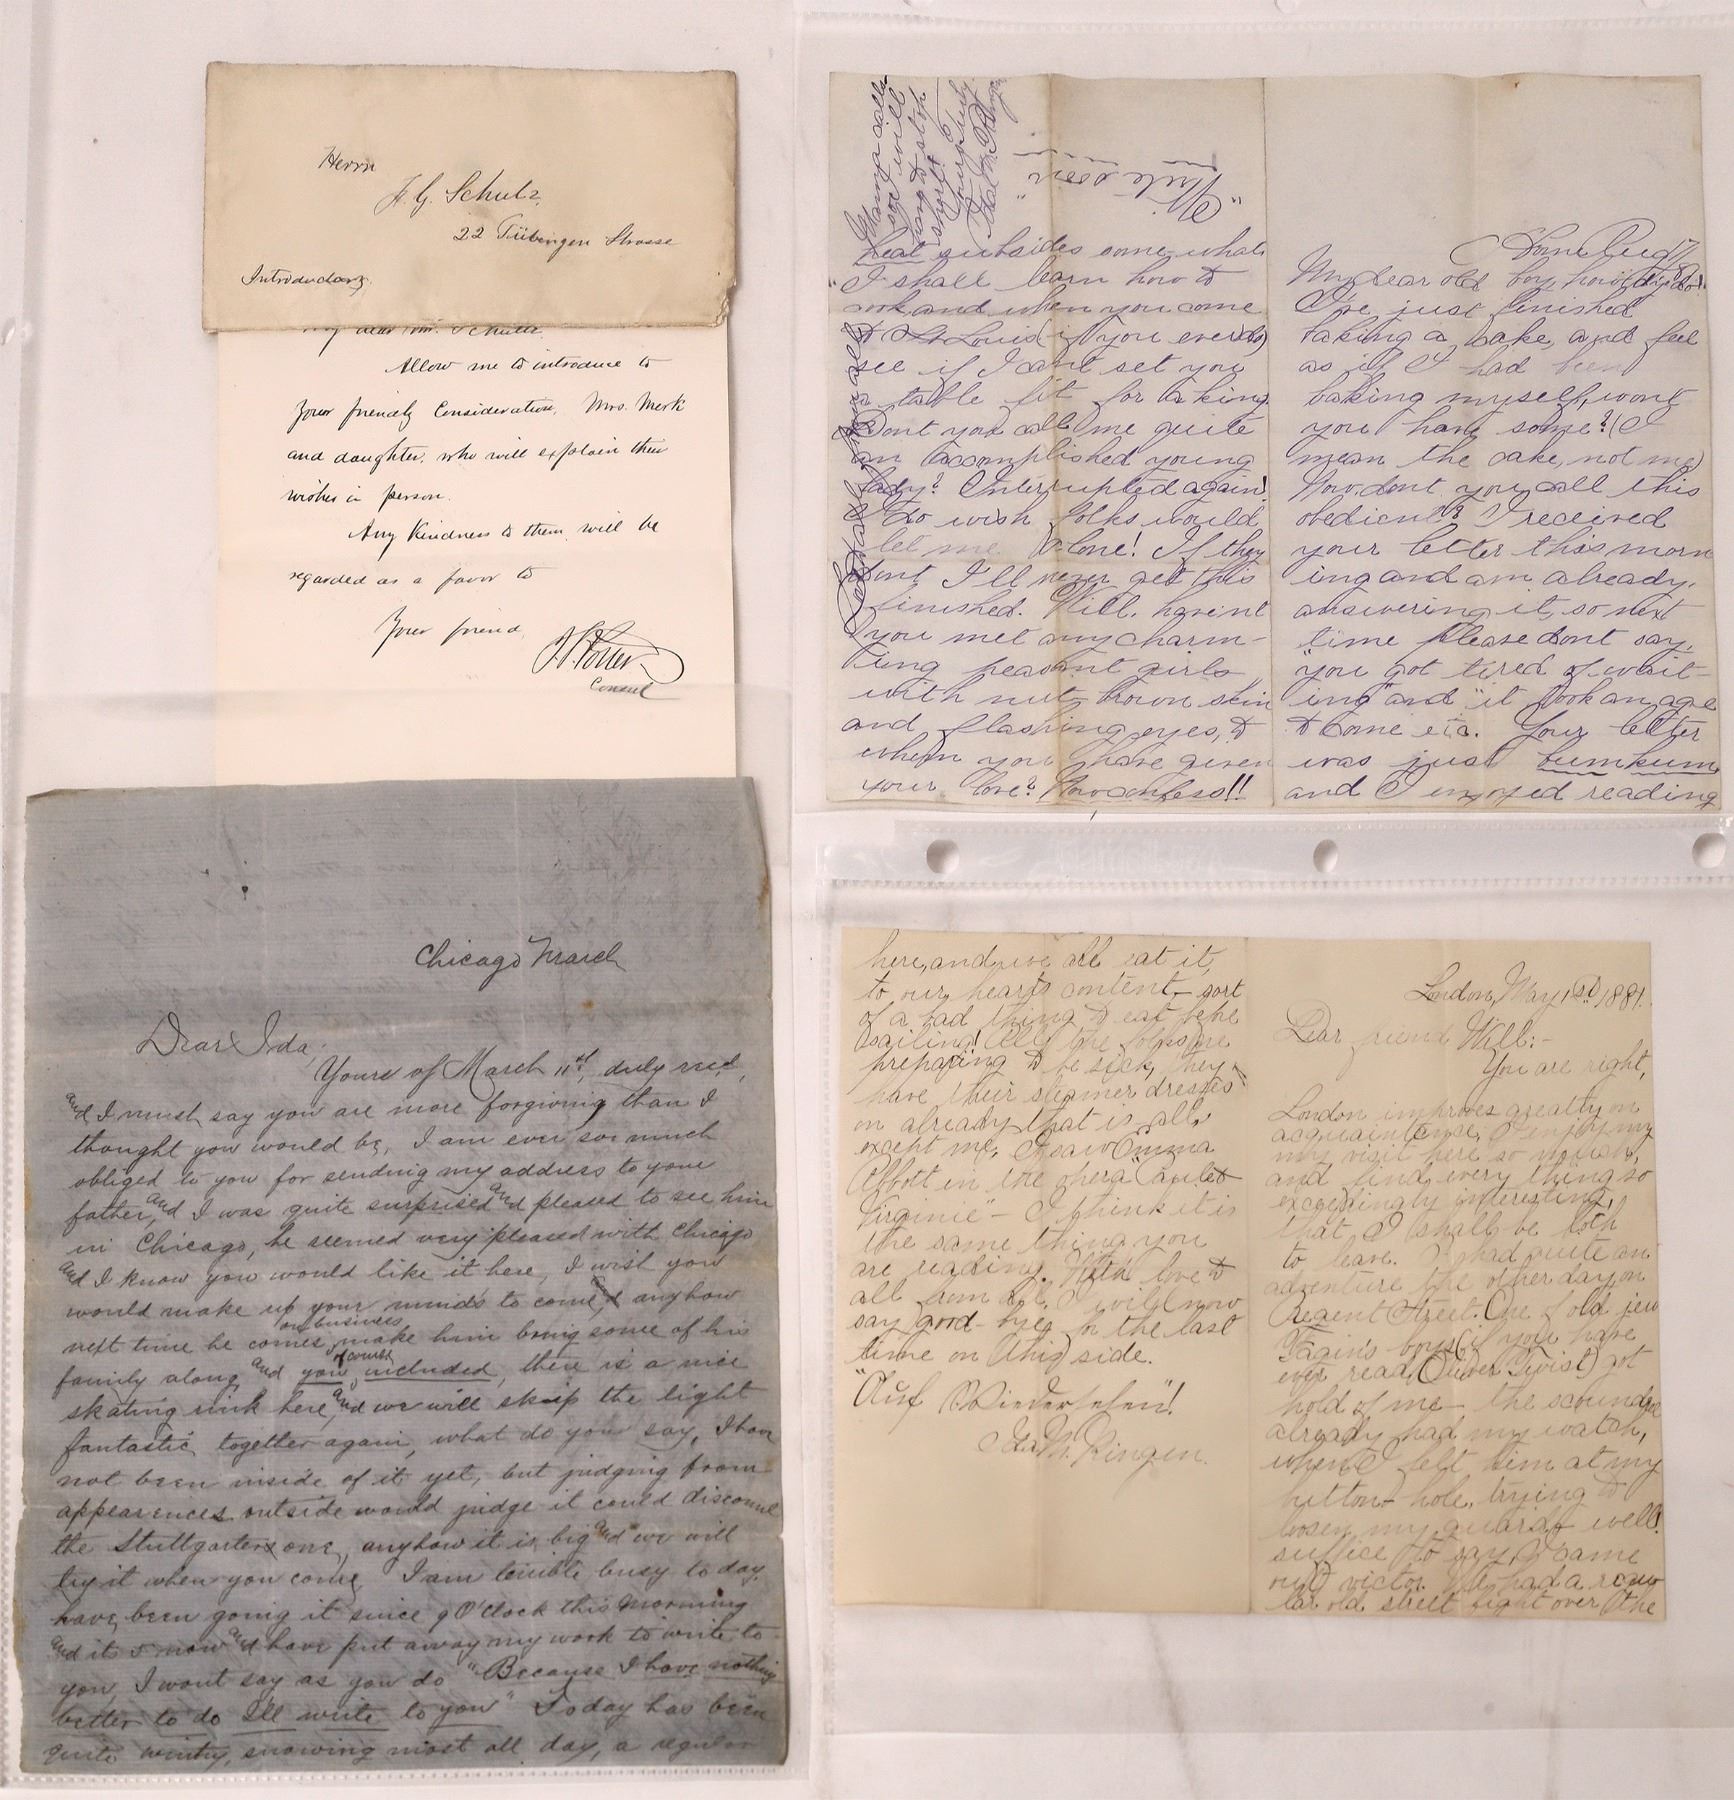 Herrn
H. G. Schulz
22 Tübingen Strasse
Introductory
My dear Mr. Schulz
Allow me to introduce to
your friendly Consideration, Mrs. Merk
and daughter, who will explain their
wishes in person.
Any Kindness to them will be
regarded as a favor to
Your friend,
Potter
Consul
Chicago March
Dear Ida,
Yours of March 11st, duly recd,
and I must say you are more forgiving than I
thought you would be, I am ever so much
obliged to you for sending my address to your
father, and I was quite surprised and pleased to see him
in Chicago, he seemed very pleased with Chicago
and I know you would like it here, I wish you
would make up your minds to come anyhow
next time he comes on business make him bring some of his
family along and you of course included, there is a nice
skating rink here, and we will skip the light
fantastic together again, what do you say, I have
not been inside of it yet, but judging from
appearences outside would judge it could discount
the Stuttgarten one, anyhow it is big and we will
try it when you come I am terrible busy to day.
have been going it since 9 O'Clock this morning
and its 5 now and have put away my work to write to
you, I wont say as you do "Because I have nothing
better to do I'll write to you" Today has been
quite wintry, snowing most all day, a regular
Mamma calls
and will
have to stop
short
Yours truly
Ida M. Ringen
"Write soon"
heat subsides some-what
I shall learn how to
cook and when you come
to St Louis (if you ever do)
see if I cant set you
a table fit for a king
Dont you call me quite
an accomplished young
lady? Interrupted again!
I do wish folks would
let me alone! If they
dont, I'll never get this
finished. Will, havent
you met any charm-
ing peasant girls
with nut-brown skin
and flashing eyes, to
whom you have given
your love? Now confess!!
Home Aug 17
My dear old boy, how dy do!
I've just finished
baking a cake, and feel
as if I had been
baking myself, wont
you have some? (I
mean the cake, not me)
Now dont you call this
obedient? I received
your letter this morn
ing and am already,
answering it, so next
time please dont say,
"you got tired of wait-
ing" and "it took an age
to come etc. Your letter
was just bumkum
and I enjoyed reading
here, and we all eat it,
to our hearts content – sort
of a bad thing to eat before
sailing! All the folks are
preparing to be sick, they
have their steamer dresses
on already that is all,
except me. I saw Emma
Abbott in the opera "Paul et
Virginie" – I think it is
the same thing you
are reading. With love to
all from all, I will now
say good-bye for the last
time on this side.
"Auf Wiedersehen"!
Ida M. Ringen.
London, May 1st 1881.
Dear friend Will:-
You are right,
London improves greatly on
acquaintence, I enjoy my
my visit here so much,
and find every thing so
exceedingly interesting,
that I shall be loth
to leave. I had quite an
adventure the other day on
Regent Street. One of old jew
Fagin's boys (if you have
ever read Oliver Twist) got
hold of me – the scoundrel
already had my watch,
when I felt him at my
button-hole, trying to
loosen my guard – well!
suffice to say, I came
out victor. We had a regu
lar old street fight over the